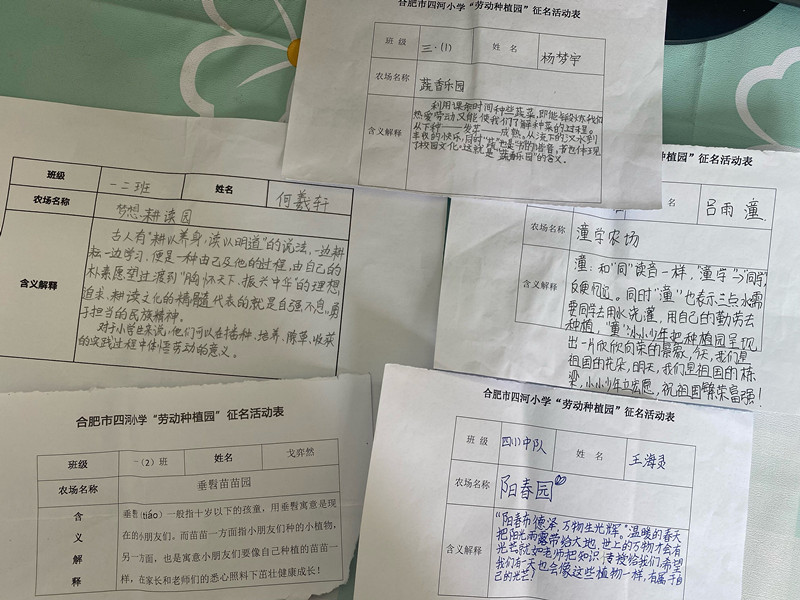 合肥市四河小学“劳动种植园”征名活动表
班级 三·(1) 姓名 杨梦宇
农场名称 蔬香乐园
含义解释
利用课余时间种些蔬菜,即能锻炼我们
热爱劳动又能使我们了解种菜的过程。
从下种——发芽——成熟。从流下的汗水到
丰收的快乐,同时“蔬”也是“书”的谐音,首也体现
了校园文化。这就是“蔬香乐园”的含义。
班级 一二班 姓名 何羲轩
农场名称 梦想耕读园
含义解释
古人有“耕以养身,读以明道”的说法,一边耕
耘一边学习,便是一种由己及他的过程,由自己的
朴素愿望过渡到“胸怀天下、振兴中华”的理想
追求,耕读文化的精髓代表的就是自强不息、勇
于担当的民族精神。
对于小学生来说,他们可以在播种、培养、除草、收获
的实践过程中体悟劳动的意义。
种植园”征名活动表
名 吕雨潼
农场名称 潼学农场
含义解释
潼:和“同”读音一样,“潼学”→“同学”,
方便忆记。同时“潼”也表示三点水需
要同学去用水浇灌,用自己的勤劳去
种植,“潼”小小少年把种植园呈现
出一片欣欣向荣的景象,今天,我们是
祖国的花朵,明天,我们是祖国的栋
梁,小小少年立宏愿,祝祖国繁荣富强!
合肥市四河小学“劳动种植园”征名活动表
班级 一(2)班 姓名 戈弈然
农场名称 垂髫苗苗园
含义解释
垂髫(tiáo)一般指十岁以下的孩童,用垂髫寓意是现
在的小朋友们,而苗苗一方面指小朋友们种的小植物,
另一方面,也是寓意小朋友们要像自己种植的苗苗一
样,在家长和老师们的悉心照料下茁壮健康成长!
合肥市四河小学“劳动种植园”征名活动表
班级 四(1)中队 姓名 王海灵
农场名称 阳春园
含义解释
“阳春布德泽,万物生光辉。”温暖的春天
把阳光雨露带给大地,世上的万物才会有
光芒就如老师把知识传授给我们,希望
我们有一天也会像这些植物一样,有属于自
己的光芒!